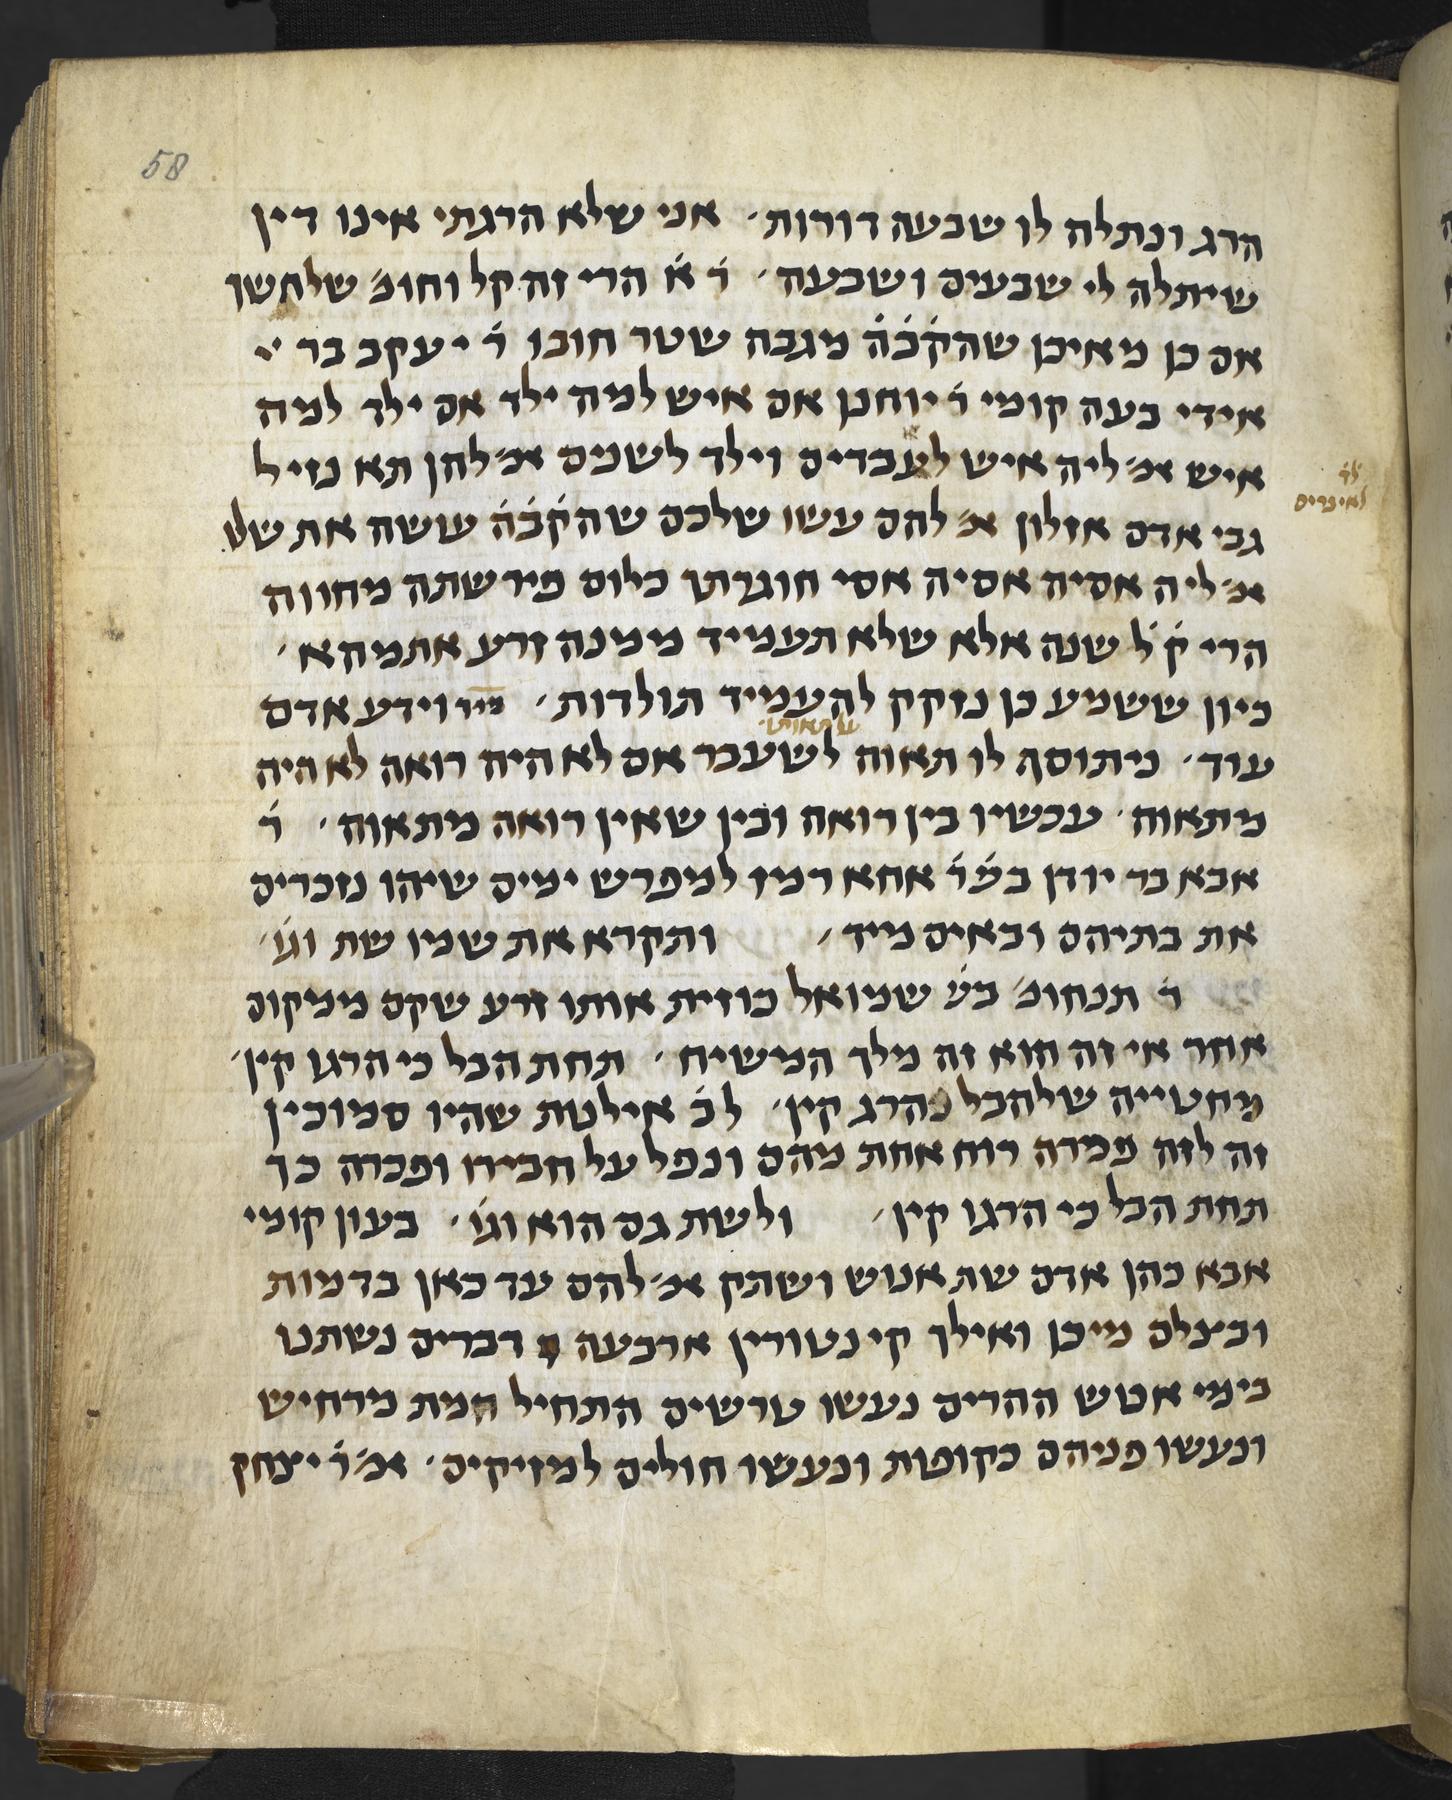 58
הרג ונתלה לו שבעה דורות׳ אני שלא הרגתי אינו דין
שיתלה לי שבעים ושבעה׳ ר׳ א׳ הרי זה קל וחומ׳ שלחשו
אם כן מאיכן שהק׳ב׳ה׳ מגבה שטר חובו ר׳ יעקב בר
אידי בעה קומי ר׳ יוחנן אם איש למה ילד אם ילד למה
איש אמ׳ ליה איש לעבדים וילד לשמים אמ׳ להן תא נזיל
לד׳
לאיברים
גבי אדם אזלון אמ׳ להם עשו שלכם שהק׳ב׳ה׳ עושה את שלו
אמ׳ ליה אסיה אסיה אסי חוגרתך כלום פירשתה מחווה
הרי ק׳ל׳ שנה אלא שלא תעמיד ממנה זרע אתמהא׳
כיון ששמע כן נזקק להעמיד תולדות׳ וידע אדם
על תאותו׳
עוד׳ ניתוסף לו תאוה לשעבר אם לא היה רואה לא היה
מתאוה׳ עכשיו בין רואה ובין שאין רואה מתאוה׳ ר׳
אבא בר יודן בש׳ ר׳ אחא רמז למפרש ימים שיהו נזכרים
את בתיהם ובאים מיד׳ ותקרא את שמו שת וגו׳
ר׳ תנחומ׳ בש׳ שמואל כוזית אותו זרע שקם ממקום
אחר אי זה הוא זה מלך המשיח׳ תחת הבל כי הרגו קין׳
מחטייה שלהבל נהרג קין׳ לב׳ אילנות שהיו סמוכין
זה לזה פמרה רוח אחת מהם ונפל על חבירו ופכרה כך
תחת הבל כי הרגו קין׳ ולשת גם הוא וגו׳ בעון קומי
אבא כהן אדם שת אנוש ושתק אמ׳ להם עד כאן בדמות
ובצלם מיכן ואילך קינטורין ארבעה דברים נשתנו
בימי אנוש ההרים נעשו טרשים התחיל המת מרחיש
ונעשו פניהם כקופות ונעשו חולים למזיקים׳ אמ׳ ר׳ יצחק